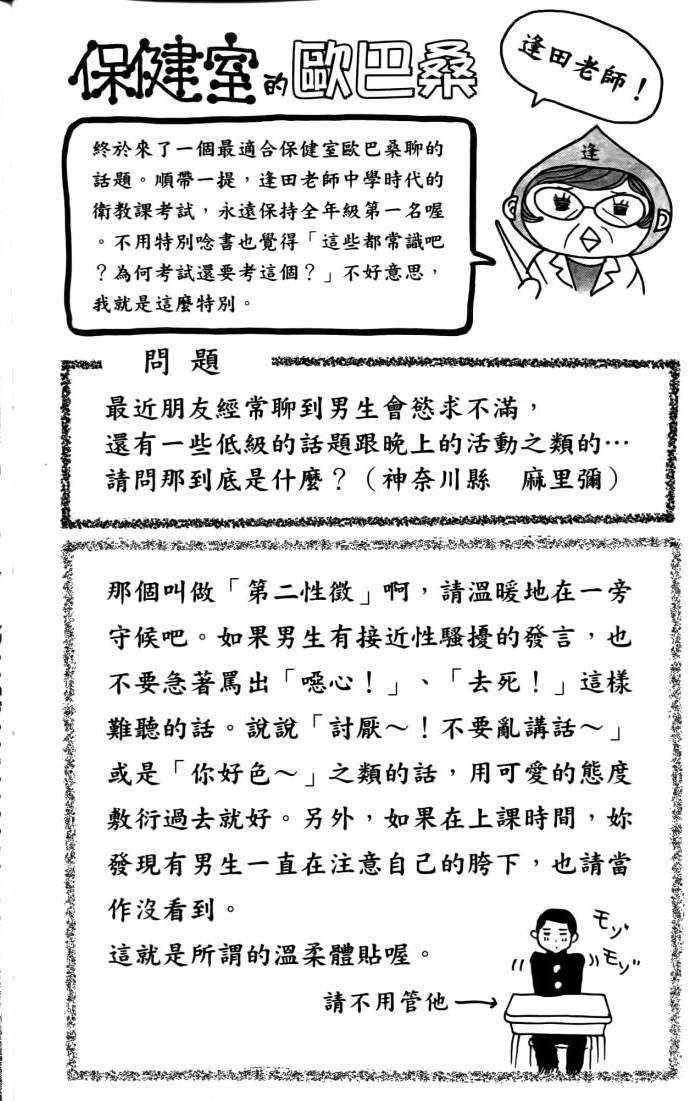 保健室的歐巴桑
逢田老師！
逢
終於來了一個最適合保健室歐巴桑聊的
話題。順帶一提，逢田老師中學時代的
衛教課考試，永遠保持全年級第一名喔
。不用特別唸書也覺得「這些都常識吧
？為何考試還要考這個？」不好意思，
我就是這麼特別。
問題
最近朋友經常聊到男生會慾求不滿，
還有一些低級的話題跟晚上的活動之類的…
請問那到底是什麼？（神奈川縣　麻里彌）
那個叫做「第二性徵」啊，請溫暖地在一旁
守候吧。如果男生有接近性騷擾的發言，也
不要急著罵出「噁心！」、「去死！」這樣
難聽的話。說說「討厭～！不要亂講話～」
或是「你好色～」之類的話，用可愛的態度
敷衍過去就好。另外，如果在上課時間，妳
發現有男生一直在注意自己的胯下，也請當
作沒看到。
這就是所謂的溫柔體貼喔。
モゾ
モゾ
請不用管他